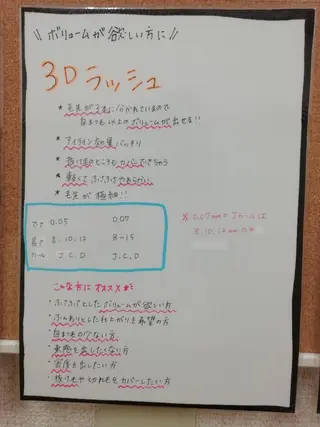 \\ ボリュームが欲しい方に //
3Dラッシュ
* 毛先が3本に分かれているので
自まつ毛以上のボリュームが出せる!!
* アイライン効果バッチリ
* 抜け毛のところもカバーできちゃう
* 軽くてふさふさやわらかい
* 毛先が極細!!
太さ 0.05 0.07
長さ 8.10.12 8~15
カール J.C.D J.C.D
※0.07mmのJカールは
8.10.12mmのみ
こんな方にオススメ
・ふさふさとしたボリュームが欲しい方
・ふんわりとした仕上がりを希望の方
・自まつ毛の少ない方
・束感を出したくない方
・密度を出したい方
・抜け毛やとかれ毛をカバーしたい方